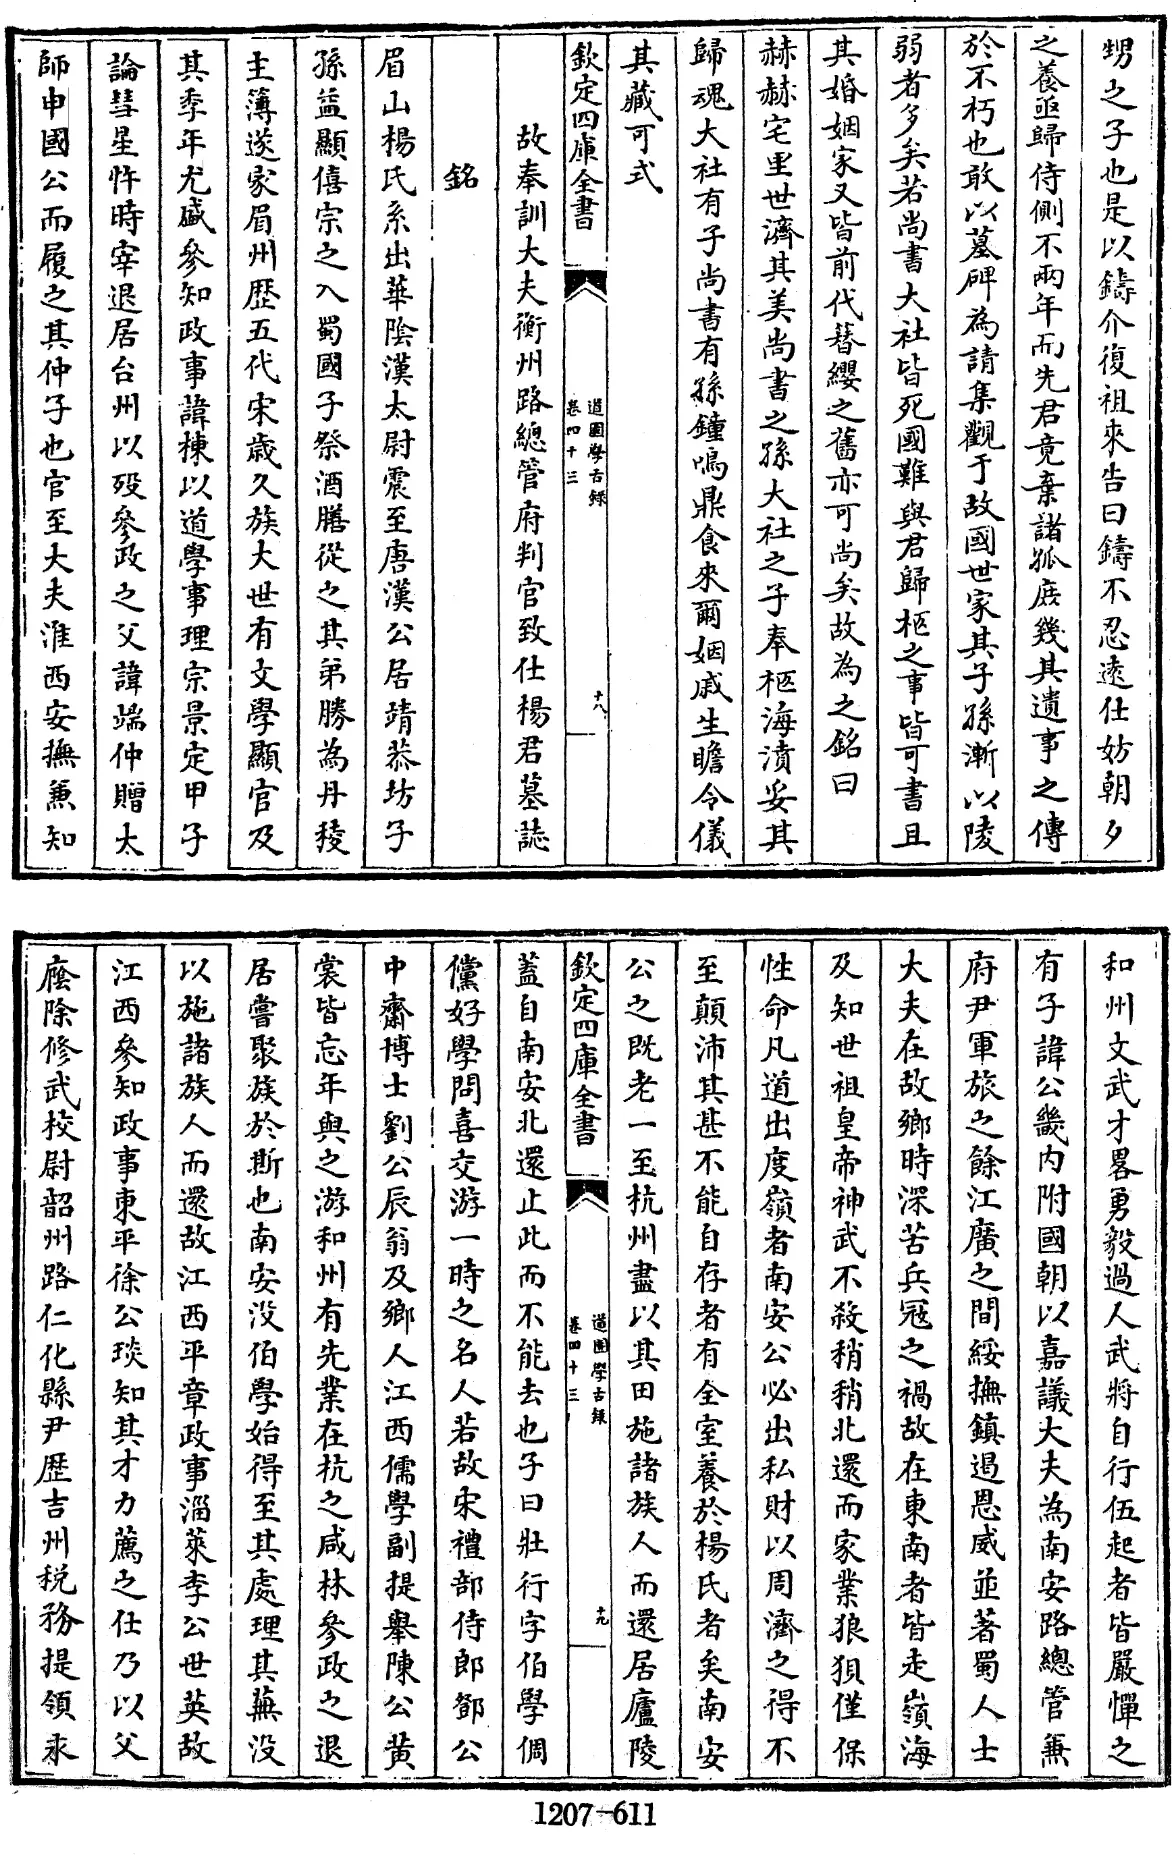 甥之子也是以鑄介復祖來告曰鑄不忍遠仕妨朝夕
之養亟歸侍側不兩年而先君竟棄諸孤庶幾其遺事之傳
於不朽也敢以墓碑為請集觀于故國世家其子孫漸以陵
弱者多矣若尚書大社皆死國難與君歸柩之事皆可書且
其婚姻家又皆前代簪纓之舊亦可尚矣故為之銘曰
赫赫宅里世濟其美尚書之孫大社之子奉柩海濆妥其
歸魂大社有子尚書有孫鐘鳴鼎食來爾姻戚生瞻令儀
其藏可式
欽定四庫全書
道園學古録
卷四十三
十八
故奉訓大夫衡州路總管府判官致仕楊君墓誌
銘
眉山楊氏系出華陰漢太尉震至唐漢公居靖恭坊子
孫益顯僖宗之入蜀國子祭酒膳從之其弟勝為丹稜
主簿遂家眉州歴五代宋歳久族大世有文學顯官及
其季年尤盛參知政事諱棟以道學事理宗景定甲子
論彗星忤時宰退居台州以殁參政之父諱端仲贈太
師申國公而履之其仲子也官至大夫淮西安撫兼知
和州文武才畧勇毅過人武將自行伍起者皆嚴憚之
有子諱公畿内附國朝以嘉議大夫為南安路總管兼
府尹軍旅之餘江廣之間綏撫鎮遏恩威並著蜀人士
大夫在故鄉時深苦兵冦之禍故在東南者皆走嶺海
及知世祖皇帝神武不殺稍稍北還而家業狼狽僅保
性命凡道出度嶺者南安公必出私財以周濟之得不
至顛沛其甚不能自存者有全室養於楊氏者矣南安
公之既老一至杭州盡以其田施諸族人而還居廬陵
欽定四庫全書
道園學古録
卷四十三
十九
蓋自南安北還止此而不能去也子曰壯行字伯學倜
儻好學問喜交游一時之名人若故宋禮部侍郎鄧公
中齋博士劉公辰翁及鄉人江西儒學副提舉陳公黄
裳皆忘年與之游和州有先業在杭之咸林參政之退
居嘗聚族於斯也南安没伯學始得至其處理其蕪没
以施諸族人而還故江西平章政事淄萊李公世英故
江西參知政事東平徐公琰知其才力薦之仕乃以父
廕除修武校尉韶州路仁化縣尹歴吉州税務提領永
1207-611